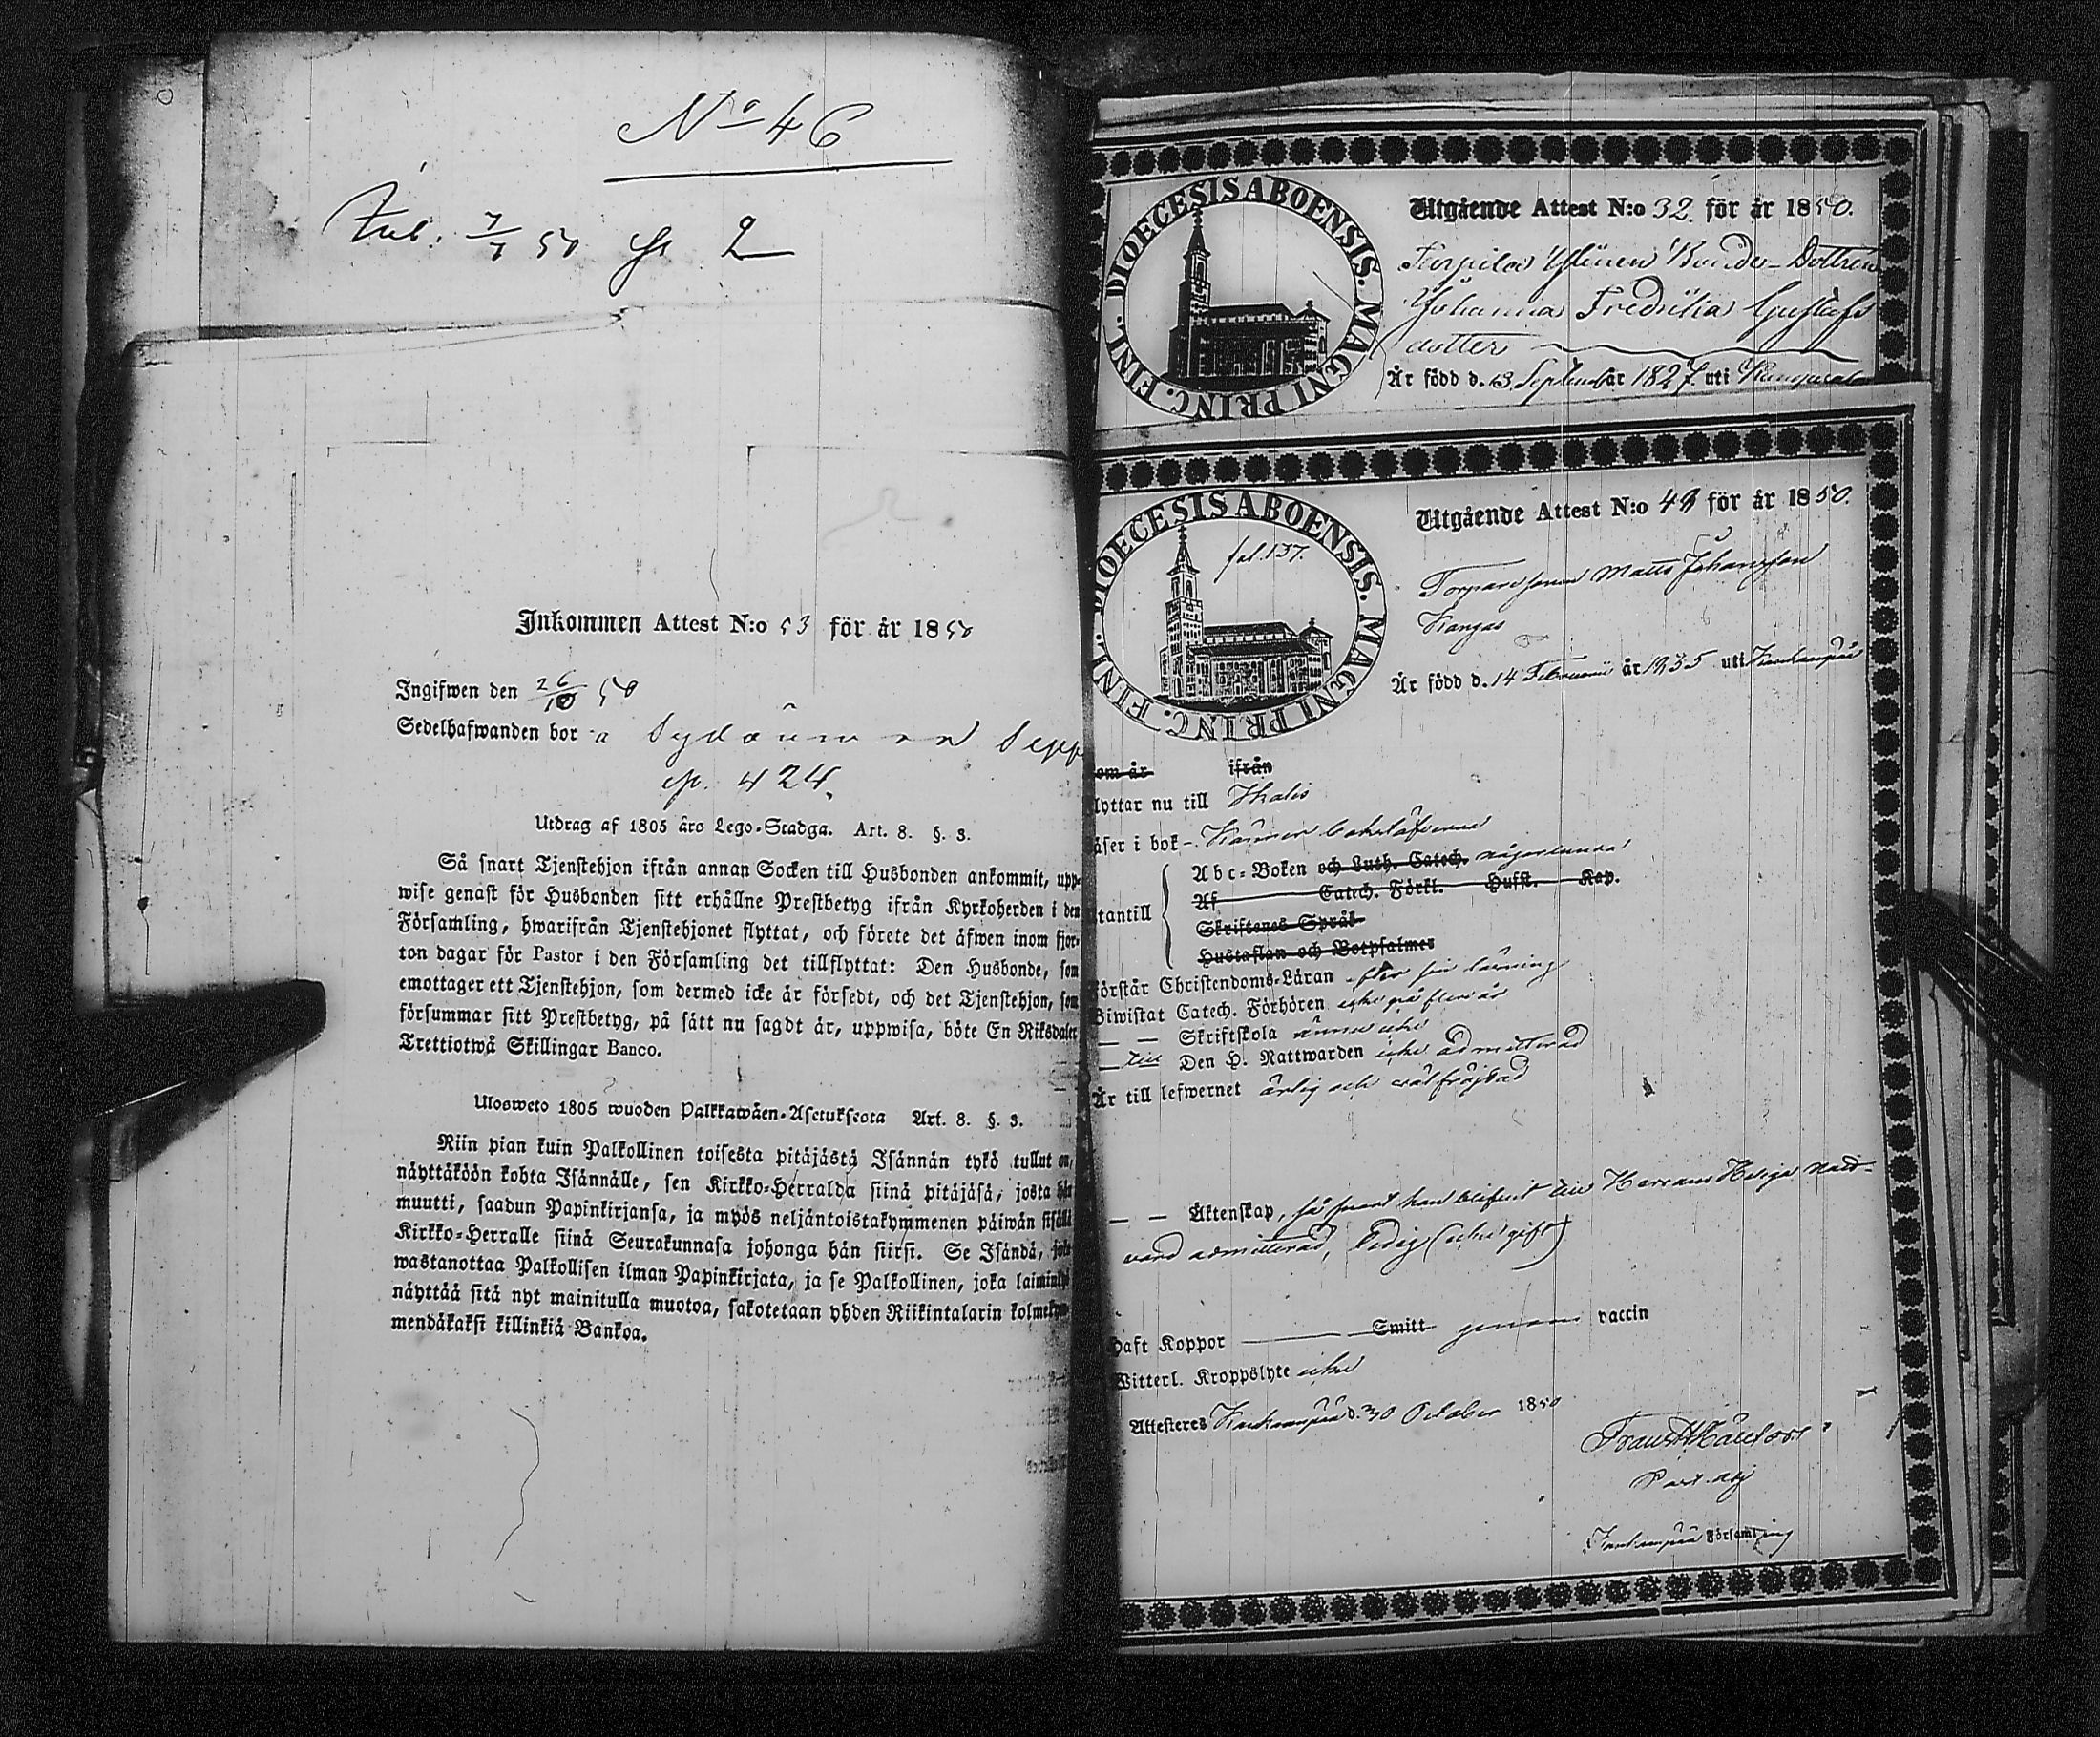 No 46
Inl. 7/7 50 p 2
Inkommen Attest N:o 53 för år 1850
Ingifwen den 26/10 50
Sedelhafwanden bor a Sydänmaa Sepp
p. 424.
Utdrag af 1805 års Lego-Stadga. Art. 8. §. 3.
Så snart Tjenstehjon ifrån annan Socken till Husbonden ankommit, upp-
wise genast för Husbonden sitt erhållne Prestbetyg ifrån Kyrkoherden i den
Församling, hwarifrån Tjenstehjonet flyttat, och förete det äfwen inom fjor-
ton dagar för Pastor i den Församling det tillflyttat: Den Husbonde, som
emottager ett Tjenstehjon, som dermed icke är försedt, och det Tjenstehjon, som
försummar sitt Prestbetyg, på sätt nu sagdt är, uppwisa, böte En Riksdaler
Trettiotwå Skillingar Banco.
Ulosweto 1805 wuoden Palkkawäen-Asetuksesta Art. 8. §. 3.
Niin pian kuin Palkollinen toisesta pitäjästä Isännän tykö tullut on,
näyttäköön kohta Isännälle, sen Kirkko-Herralda siinä pitäjäsä, josta hän
muutti, saadun Papinkirjansa, ja myös neljäntoistakymmenen päiwän sisällä
Kirkko-Herralle siinä Seurakunnasa johonga hän siirsi. Se Isändä, joka
wastanottaa Palkollisen ilman Papinkirjata, ja se Palkollinen, joka laiminlyö
näyttää sitä nyt mainitulla muotoa, sakotetaan yhden Riikintalarin kolmekym-
mendäkaksi killinkiä Bankoa.
DIOECESIS ABOENSIS. MAGNI PRINC. FINL.
Utgående Attest N:o 32. för år 1850.
Bonde-Dottren
Johanna Fredrika Gustafs
dotter
Är född d. 13 September år 1827. uti Kangasala
DIOECESIS ABOENSIS. MAGNI PRINC. FINL.
fol. 137.
Utgående Attest N:o 43 för år 1850.
Torparesonen Matts Johansson
Kangas
Är född d. 14 Februarii år 1835 uti Kankaanpää
om är ifrån
lyttar nu till Ikalis
äser i bok - Känner bokstäfverna
Abc-Boken och Luth. Catech. någorlunda
Af Catech. Förkl. Hufst. Kap.
tantill
Skriftenes Språk
Hustaflan och Botpsalmer
örstår Christendoms-Läran efter sin lärning
Biwistat Catech. Förhören icke på flera år
— — Skriftskola ännu icke
— till Den H. Nattwarden icke admitterad
Är till lefwernet ärlig och välfräjdad
— — Äktenskap, så snart han blifvit till Herrans Heliga Natt-
vard admitterad, ledig (icke gift)
Haft Koppor Smitt genom vaccin
Witterl. Kroppslyte icke
Attesteres Kankaanpää d. 20 October 1850
Past. adj
Kankaanpää Församling